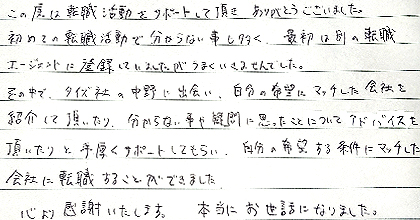 この度は転職活動をサポートして頂き ありがとうございました。
初めての転職活動で分からない事も多く、最初は別の転職
エージェントに登録していましたがうまくいきませんでした。
その中で、タイズ社の中野に出会い、自分の希望にマッチした会社を
紹介して頂いたり、分からない事や疑問に思ったことについてアドバイスを
頂いたりと手厚くサポートしてもらい、自分の希望する条件にマッチした
会社に転職することができました
心より感謝いたします。 本当にお世話になりました。